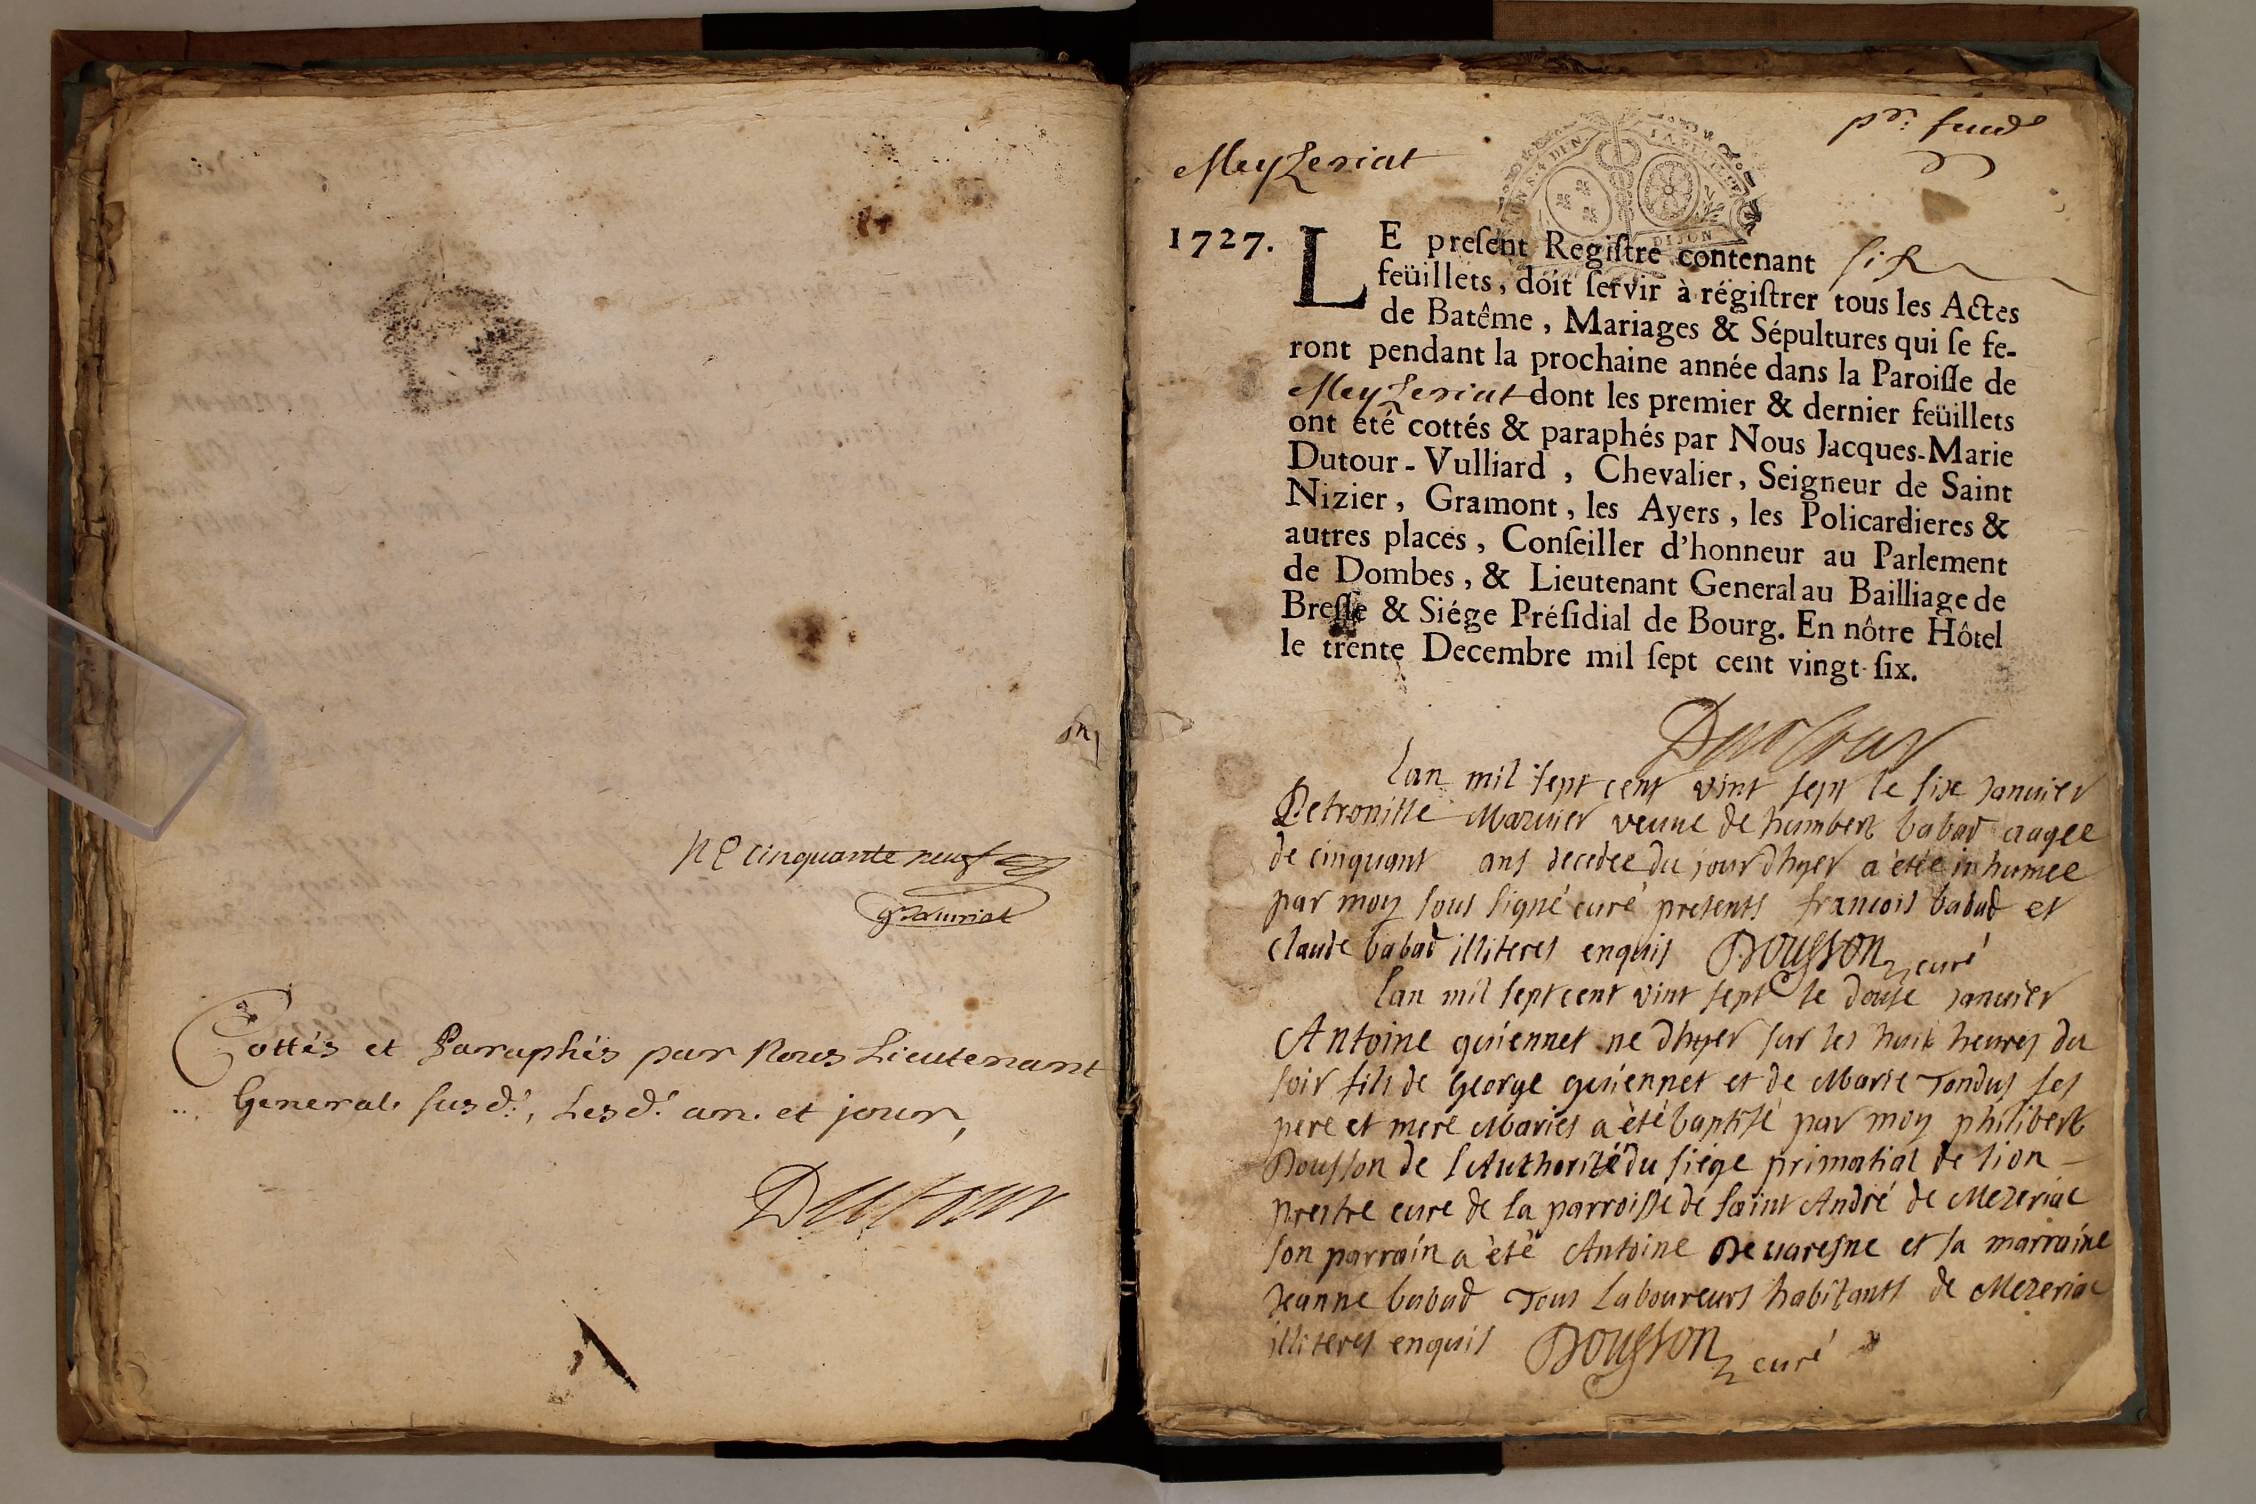 n.e cinquante neuf
Cottés et Paraphés par Nous Lieutenant
General susd.t, Lesd.t an. et jour,
Dutour
MeyZeriat
pr. feuil
1727.
LE preſent Regiſtre contenant six
feüillets, doit ſervir à régiſtrer tous les Actes
de Batême, Mariages & Sépultures qui ſe fe-
ront pendant la prochaine année dans la Paroiſſe de
MeyZeriat dont les premier & dernier feüillets
ont été cottés & paraphés par Nous Jacques-Marie
Dutour-Vulliard, Chevalier, Seigneur de Saint
Nizier, Gramont, les Ayers, les Policardieres &
autres places, Conſeiller d'honneur au Parlement
de Dombes, & Lieutenant General au Bailliage de
Breſſe & Siége Préſidial de Bourg. En nôtre Hôtel
le trente Decembre mil ſept cent vingt-ſix.
DIJON
Dutour
lan mil sept cent vint sept le sixe janvier
Petronille Marvier veuve de humbert babad aagee
de cinquant ans decedee du jour dhyer a étté inhumee
par moy sous signé curé presents francois babad et
claude babad illiteres enquis Dousson curé
lan mil sept cent vint sept le douse janvier
Antoine guiennet ne dhyer sur les huit heures du
soir fils de George guiennet et de Marie Tondus ses
pere et mere Maries a été baptisé par moy philibert
Dousson de lAuthorité du siége primatial de lion
prestre curé de la parroisse de saint André de Mezeriac
son parrain a été Antoine Devaresne et sa marraine
Jeanne babad Tous Laboureurs habitants de Mezeriac
illiteres enquis Dousson curé